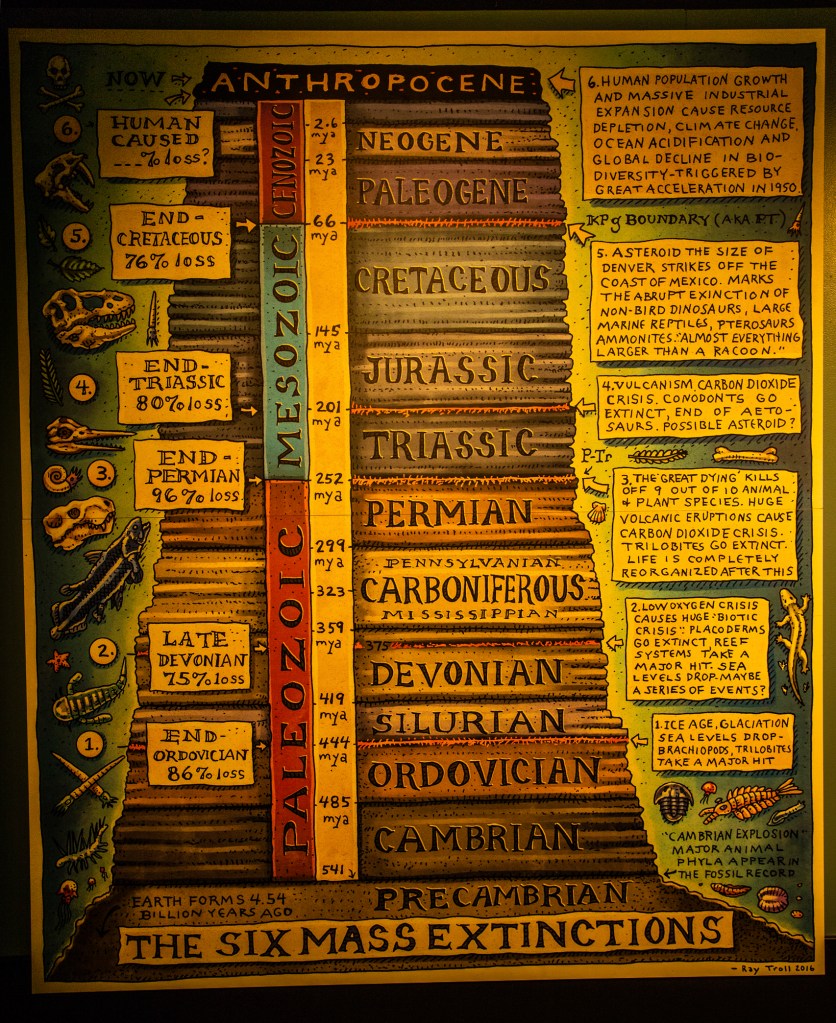 NOW
ANTHROPOCENE
6.
HUMAN
CAUSED
___% loss?
CENOZOIC
2.6
mya
NEOGENE
23
mya
PALEOGENE
6. HUMAN POPULATION GROWTH
AND MASSIVE INDUSTRIAL
EXPANSION CAUSE RESOURCE
DEPLETION, CLIMATE CHANGE,
OCEAN ACIDIFICATION AND
GLOBAL DECLINE IN BIO-
DIVERSITY-TRIGGERED BY
GREAT ACCELERATION IN 1950.
5.
END-
CRETACEOUS
76% loss
66
mya
KPg BOUNDARY (AKA KT)
MESOZOIC
CRETACEOUS
5. ASTEROID THE SIZE OF
DENVER STRIKES OFF THE
COAST OF MEXICO. MARKS
THE ABRUPT EXINCTION OF
NON-BIRD DINOSAURS, LARGE
MARINE REPTILES, PTEROSAURS
AMMONITES. "ALMOST EVERYTHING
LARGER THAN A RACOON."
145
mya
JURASSIC
4.
END-
TRIASSIC
80% loss
201
mya
4. VULCANISM, CARBON DIOXIDE
CRISIS. CONODONTS GO
EXTINCT, END OF AETO-
SAURS. POSSIBLE ASTEROID?
TRIASSIC
3.
END-
PERMIAN
96% loss
252
mya
P-Tr
3. THE 'GREAT DYING' KILLS
OFF 9 OUT OF 10 ANIMAL
& PLANT SPECIES. HUGE
VOLCANIC ERUPTIONS CAUSE
CARBON DIOXIDE CRISIS.
TRILOBITES GO EXTINCT.
LIFE IS COMPLETELY
REORGANIZED AFTER THIS
PALEOZOIC
PERMIAN
299
mya
PENNSYLVANIAN
CARBONIFEROUS
323
MISSISSIPPIAN
359
mya
2.
LATE
DEVONIAN
75% loss
375
DEVONIAN
2. LOW OXYGEN CRISIS
CAUSES HUGE "BIOTIC
CRISIS": PLACODERMS
GO EXTINCT REEF
SYSTEMS TAKE A
MAJOR HIT. SEA
LEVELS DROP-MAYBE
A SERIES OF EVENTS?
419
mya
SILURIAN
1.
END-
ORDOVICIAN
86% loss
444
mya
ORDOVICIAN
1. ICE AGE, GLACIATION
SEA LEVELS DROP-
BRACHIOPODS, TRILOBITES
TAKE A MAJOR HIT
485
mya
CAMBRIAN
541
"CAMBRIAN EXPLOSION"
MAJOR ANIMAL
PHYLA APPEAR IN
THE FOSSIL RECORD
PRECAMBRIAN
EARTH FORMS 4.54
BILLION YEARS AGO
THE SIX MASS EXTINCTIONS
- Ray Troll 2016